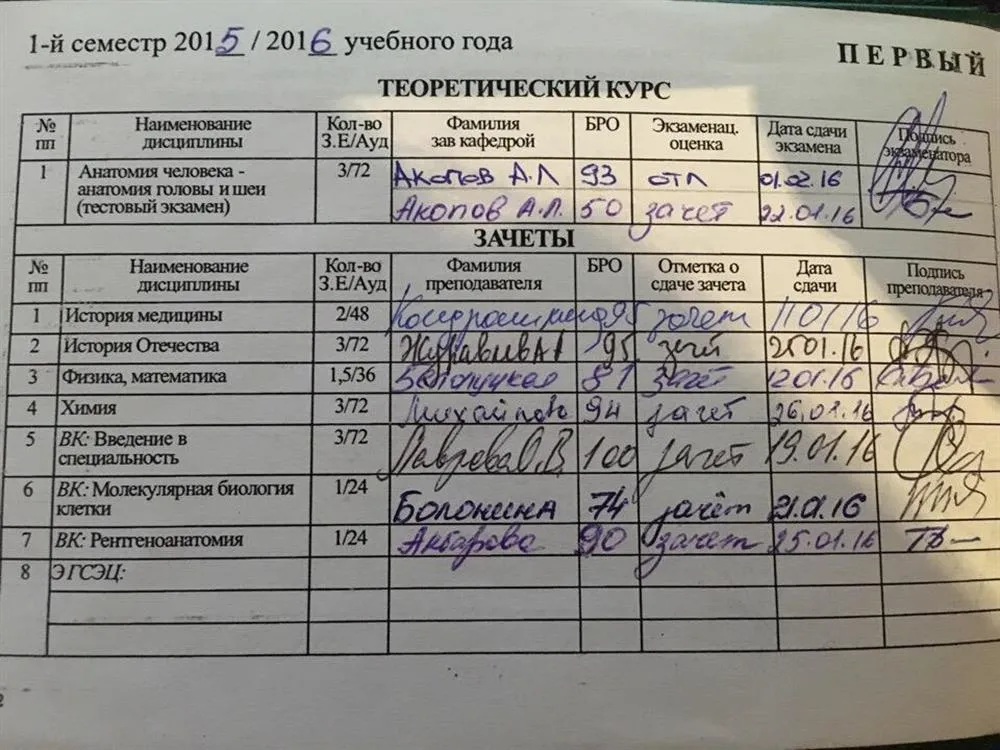 1-й семестр 2015 / 2016 учебного года
ПЕРВЫЙ
ТЕОРЕТИЧЕСКИЙ КУРС
№ пп Наименование дисциплины Кол-во З.Е/Ауд Фамилия зав кафедрой БРО Экзаменац. оценка Дата сдачи экзамена Подпись экзаменатора
1 Анатомия человека - анатомия головы и шеи (тестовый экзамен) 3/72 Акопов А.Л 93 отл 01.02.16
Акопов А.Л. 50 зачет 22.01.16
ЗАЧЕТЫ
№ пп Наименование дисциплины Кол-во З.Е/Ауд Фамилия преподавателя БРО Отметка о сдаче зачета Дата сдачи Подпись преподавателя
1 История медицины 2/48 95 зачет 110116
2 История Отечества 3/72 95 зачет 25.01.16
3 Физика, математика 1,5/36 81 зачет 12.01.16
4 Химия 3/72 94 зачет 26.01.16
5 ВК: Введение в специальность 3/72 Лаврова О.В. 100 зачет 19.01.16
6 ВК: Молекулярная биология клетки 1/24 Болонина 74 зачёт 21.01.16
7 ВК: Рентгеноанатомия 1/24 Акбарова 90 зачет 25.01.16
8 Э ГСЭЦ:
2